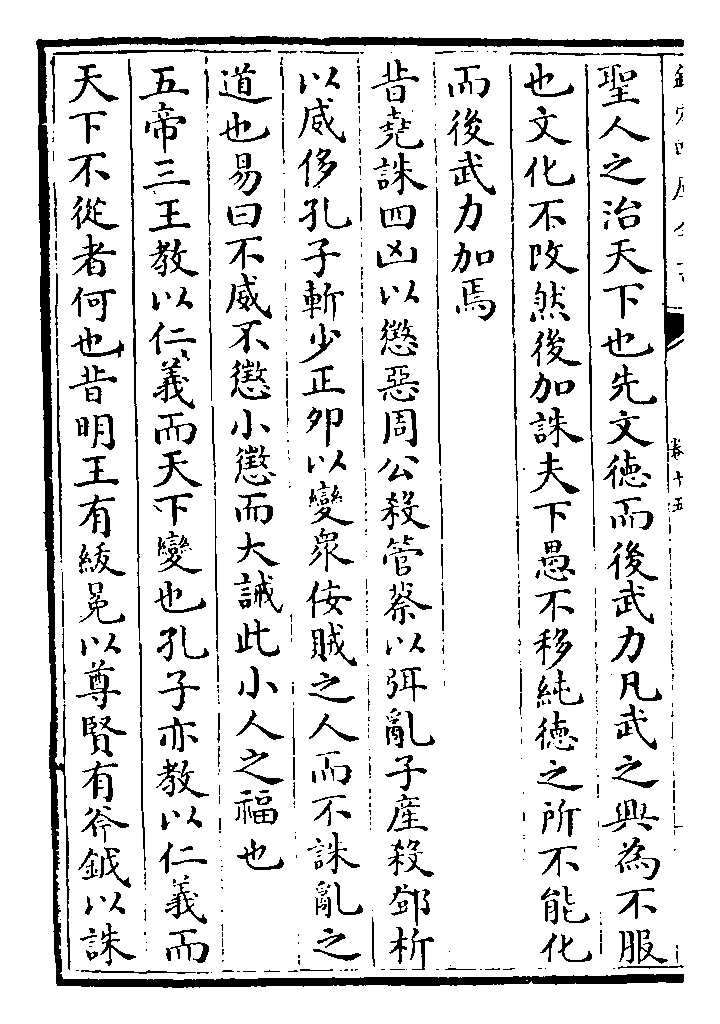 卷十五
聖人之治天下也先文徳而後武力凡武之興為不服
也文化不改然後加誅夫下愚不移純徳之所不能化
而後武力加焉
昔堯誅四凶以懲惡周公殺管蔡以弭亂子産殺鄧析
以威侈孔子斬少正卯以變衆佞賊之人而不誅亂之
道也易曰不威不懲小懲而大誡此小人之福也
五帝三王教以仁義而天下變也孔子亦教以仁義而
天下不從者何也昔明王有紱冕以尊賢有斧鉞以誅